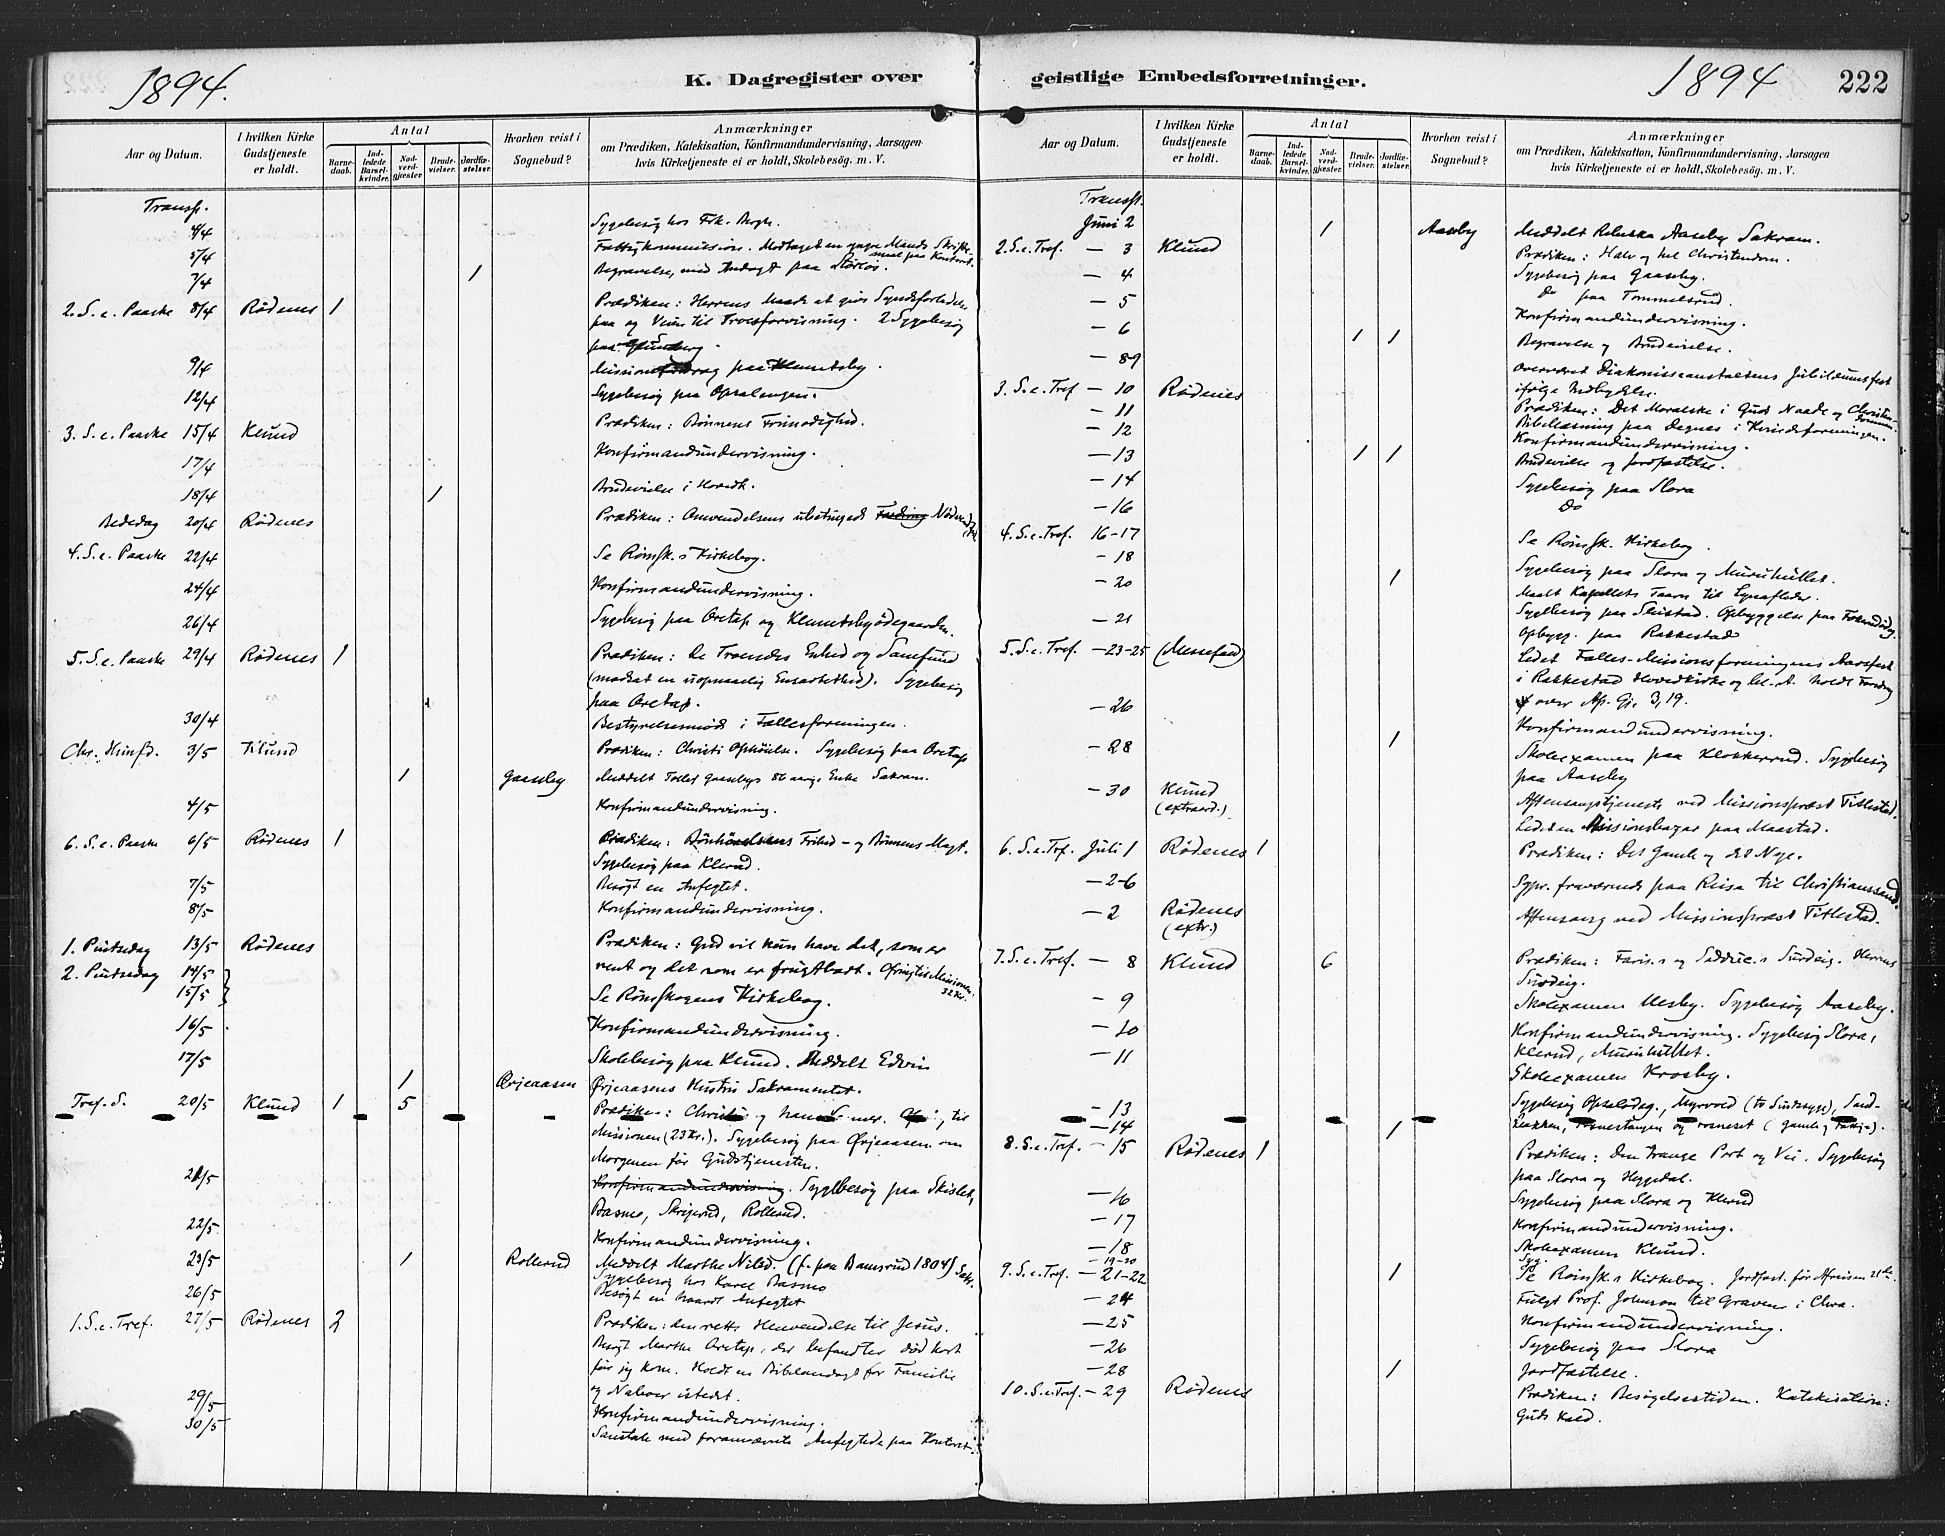 1894.
K. Dagregister over
Aar og Datum.
I hvilken Kirke Gudstjeneste er holdt.
Antal
Barne-daab.
Ind-ledede Barsel-kvinder.
Nad-verd-gjester.
Brude-vielser.
Jordfæ-stelser.
Hvorhen reist i Sognebud?
Anmærkninger
om Prædiken, Katekisation, Konfirmandundervisning, Aarsagen
hvis Kirketjeneste ei er holdt, Skolebesög. m. V.
Transp.
4/4 Sygebesøg hos Frk.
5/4 Fattigkommission. Modtaget en ung Mands Skrifte-
maal paa Kontoret.
7/4 1 Begravelse, med Andagt paa
2. S. e. Paaske 8/4 Rødenes 1 Prædiken: Herrens Maade at give Syndsforladelse
paa og Veien til Troesforvisning. 2 Sygebesøg
paa
9/4 paa Klemetsby.
12/4 Sygebesøg paa
3. S. e. Paaske 15/4 Klund Prædiken: Bønnens Frimodighed.
17/4 Konfirmandundervisning.
18/4 1 Brudevielse i Hovedk.
Bededag 20/4 Rødenes Prædiken: Omvendelsens ubetingede
4. S. e. Paaske 22/4 Se Rømsk.s Kirkebog.
24/4 Konfirmandundervisning.
26/4 Sygebesøg paa Oretap og Klemetsbyødegaarden.
5. S. e. Paaske 29/4 Rødenes 1 Prædiken: De Troendes Enhed og Samfund
(modsat en uopnaaelig Ensartethed). Sygebesøg
paa Oretap.
30/4 Bestyrelsesmøde i Fællesforeningen.
Chr. Himfd. 3/5 Klund Prædiken: Christi Ophøielse. Sygebesøg paa Oretap
1 Gaaseby Meddelt Tolles Gaasebys 86 aarige Enke Sakram.
4/5 Konfirmandundervisning.
6. S. e. Paaske 6/5 Rødenes 1 Prædiken: Bønhørelsens Frihed – og Bønnens Magt.
Sygebesøg paa Klerud.
7/5 Besøgt en Anfegtet.
8/5 Konfirmandundervisning.
1. Pintsedag 13/5 Rødenes Prædiken: Gud vil kun have det, som er
2. Pintsedag 14/5 rent og det som er frugtbart. Ofring til Missionen
32 Kr.
15/5 Se Rømskogens Kirkebog.
16/5 Konfirmandundervisning.
17/5 Skolebesøg paa Klund. Meddelt Edvin
1 Ørjeaasen Ørjeaasens Hustru Sakramentet.
Tref. S. 20/5 Klund 1 5 Prædiken: Christus og til
Missionen (23 Kr.). Sygebesøg paa Ørjeaasen om
Morgenen før Gudstjenesten.
21/5 Konfirmandundervisning. Sygebesøg paa
Basmo, Rollerud.
22/5 Konfirmandundervisning.
23/5 1 Rollerud Meddelt Marthe Nilsd. (f. paa 1804) Sakr.
Sygebesøg hos Karel Basmo
26/5 Besøgt en haardt Anfegtet
1. S. e. Tref. 27/5 Rødenes 2 Prædiken: den rette Henvendelse til Jesus.
Besøgt Marthe Oretap, der befandtes død kort
før jeg kom. Holdt en Bibelandagt for Familie
og Naboer istedet.
29/5 Konfirmandundervisning.
30/5 Samtale med forannævnte Anfegtede paa Kontoret.
geistlige Embedsforretninger.
1894
222
Aar og Datum.
I hvilken Kirke Gudstjeneste er holdt.
Antal
Barne-daab.
Ind-ledede Barsel-kvinder.
Nad-verd-gjester.
Brude-vielser.
Jordfæ-stelser.
Hvorhen reist i Sognebud?
Anmærkninger
om Prædiken, Katekisation, Konfirmandundervisning, Aarsagen
hvis Kirketjeneste ei er holdt, Skolebesög. m. V.
Transp.
Juni 2 1 Aaseby Meddelt Rebekka Aaseby Sakram.
2. S. e. Tref. – 3 Klund Prædiken: Halv og hel Christendom.
– 4 Sygebesøg paa Gaaseby.
– 5 Do paa Tommelsrud.
– 6 Konfirmandundervisning.
1 1 Begravelse og Brudevielse.
– 8-9 Overværet Diakonisseanstaltens Jubilæumsfest
ifølge Indbydelse.
3. S. e. Tref. – 10 Rødenes Prædiken: Det Moralske i Guds Naade og Christendommen.
– 11 Bibellæsning paa i Kvindeforeningen.
– 12 Konfirmandundervisning.
– 13 1 1 Brudevielse og Jordfæstelse.
– 14 Sygebesøg paa Slora
– 16 Do
4. S. e. Tref. 16-17 Se Rømsk. Kirkebog.
– 18 Sygebesøg paa Slora og Muruhullet.
– 20 1 Maalt Kapellets Taarn til Lynafleder.
– 21 Sygebesøg paa Opbyggelse paa
Opbygg. paa Rakkestad
5. S. e. Tref. – 23-25 (Messefald) Ledet Fælles-Missionsforeningens Aarsfest
i Rakkestad Hovedkirke og bl. A. holdt Foredrag
over Ap. Gj. 3, 19.
– 26 Konfirmandundervisning.
– 28 1 Skoleexamen paa Klokkerud. Sygebesøg
paa Aaseby
– 30 Klund
(extraord.) Aftensangstjeneste ved Missionsprest Titlestad.
Ledet en Missionsbazar paa Maastad.
6. S. e. Tref. Juli 1 Rødenes 1 Prædiken: Det Gamle og det Nye.
– 2-6 fraværende paa Reise til Christianssand.
– 2 Rødenes
(extr.) Aftensang ved Missionsprest Titlestad.
7. S. e. Tref. – 8 Klund 6 Prædiken: Faris.s og Sadduc.s Surdeig. Herrens
Surdeig.
– 9 Skoleexamen Sygebesøg Aaseby.
– 10 Konfirmandundervisning. Sygebesøg Slora,
Klerud, Muruhullet.
– 11 Skoleexamen Krosby.
– 13 Sygebesøg
– 14 1
8. S. e. Tref. – 15 Rødenes 1 Prædiken: Den trange Port og Vei. Sygebesøg
paa Slora og
– 16 Sygebesøg paa Slora og Klerud
– 17 Konfirmandundervisning.
– 18 Skoleexamen Klund.
– 19-20 Syg.
9. S. e. Tref. – 21-22 1 Se Rømsk.s Kirkebog. Jordfæst. før Afreisen 21de.
– 24 Fulgt Prof. Johnson til Graven i Chra.
– 25 Konfirmandundervisning.
– 26 Sygebesøg paa Slora
– 28 1 Jordfæstelse.
10. S. e. Tref. – 29 Rødenes Prædiken: Besøgelsestiden. Katekisation:
Guds Kald.